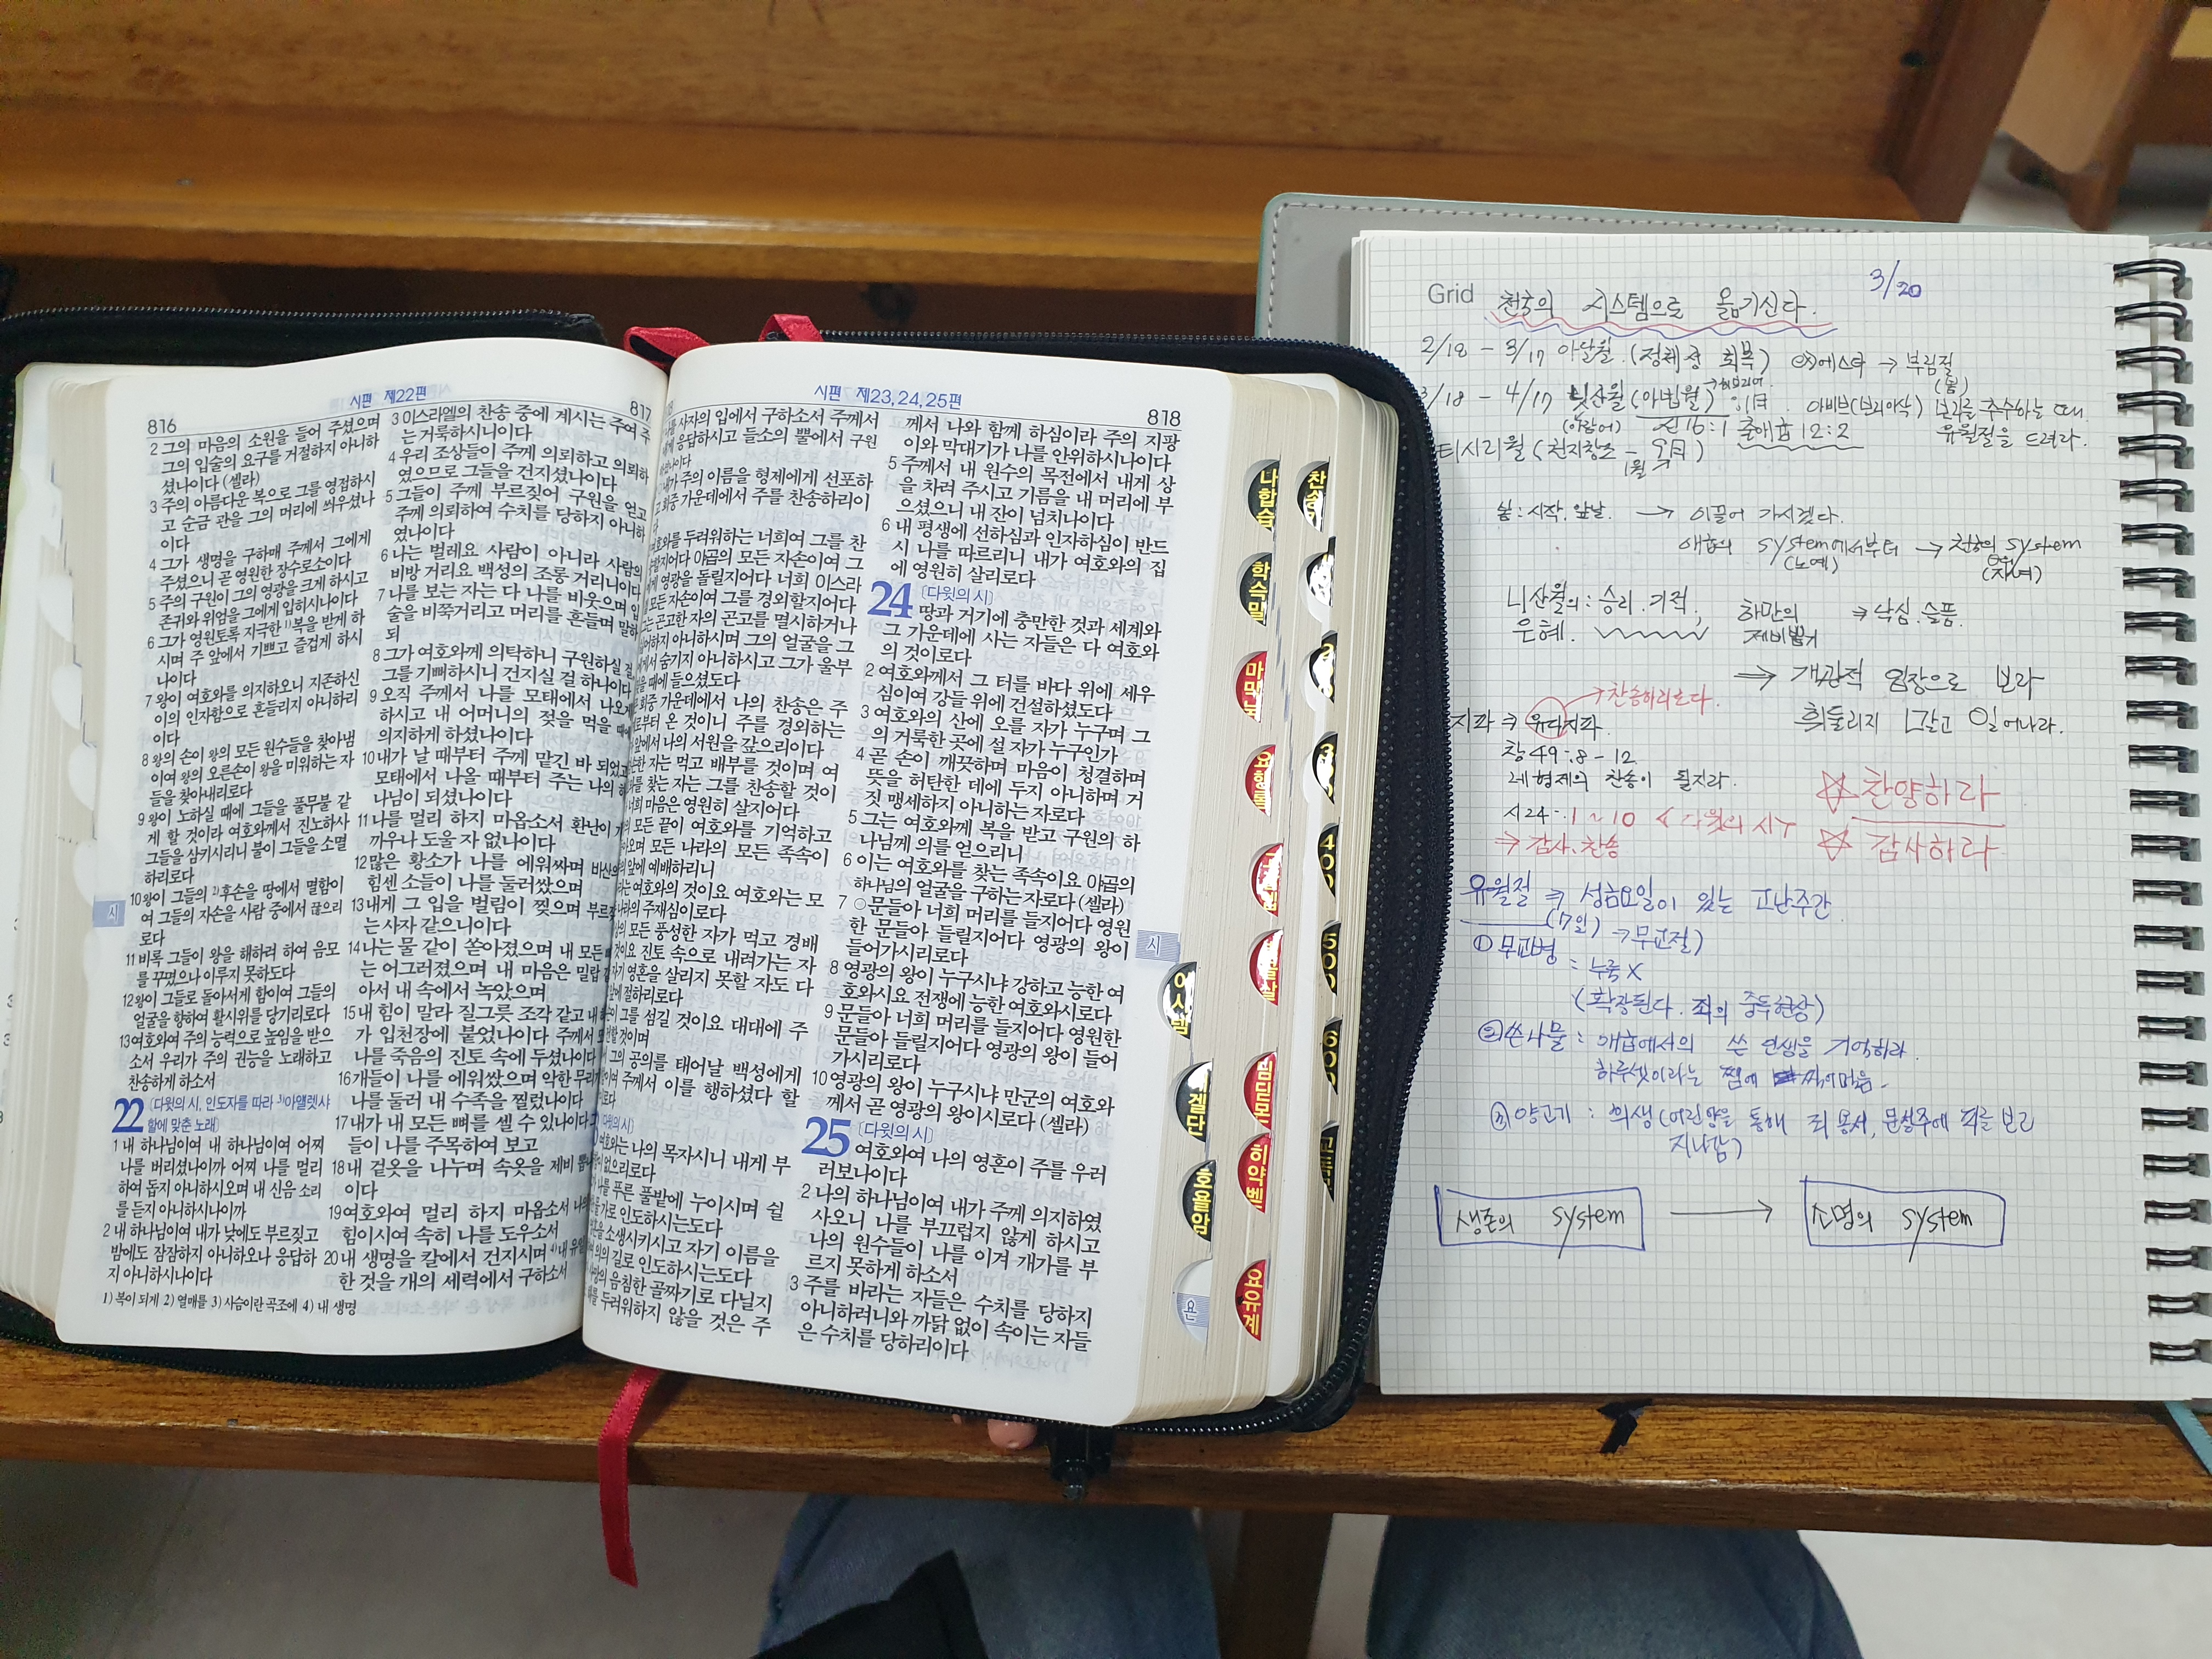 시편 제22편
816
817
2 그의 마음의 소원을 들어 주셨으며
그의 입술의 요구를 거절하지 아니하
셨나이다 (셀라)
3 주의 아름다운 복으로 그를 영접하시
고 순금 관을 그의 머리에 씌우셨나
이다
4 그가 생명을 구하매 주께서 그에게
주셨으니 곧 영원한 장수로소이다
5 주의 구원이 그의 영광을 크게 하시고
존귀와 위엄을 그에게 입히시나이다
6 그가 영원토록 지극한 1)복을 받게 하
시며 주 앞에서 기쁘고 즐겁게 하시
나이다
7 왕이 여호와를 의지하오니 지존하신
이의 인자함으로 흔들리지 아니하리
이다
8 왕의 손이 왕의 모든 원수들을 찾아냄
이여 왕의 오른손이 왕을 미워하는 자
들을 찾아내리로다
9 왕이 노하실 때에 그들을 풀무불 같
게 할 것이라 여호와께서 진노하사
그들을 삼키시리니 불이 그들을 소멸
하리로다
10 왕이 그들의 2)후손을 땅에서 멸함이
여 그들의 자손을 사람 중에서 끊으리
로다
11 비록 그들이 왕을 해하려 하여 음모
를 꾸몄으나 이루지 못하도다
12 왕이 그들로 돌아서게 함이여 그들의
얼굴을 향하여 활시위를 당기리로다
13 여호와여 주의 능력으로 높임을 받으
소서 우리가 주의 권능을 노래하고
찬송하게 하소서
22 〔다윗의 시, 인도자를 따라 3)아얠렛샤
할에 맞춘 노래〕
1 내 하나님이여 내 하나님이여 어찌
나를 버리셨나이까 어찌 나를 멀리
하여 돕지 아니하시오며 내 신음 소리
를 듣지 아니하시나이까
2 내 하나님이여 내가 낮에도 부르짖고
밤에도 잠잠하지 아니하오나 응답하
지 아니하시나이다
1) 복이 되게 2) 열매를 3) 사슴이란 곡조에 4) 내 생명
3 이스라엘의 찬송 중에 계시는 주여 주
는 거룩하시니이다
4 우리 조상들이 주께 의뢰하고 의뢰하
였으므로 그들을 건지셨나이다
5 그들이 주께 부르짖어 구원을 얻고
주께 의뢰하여 수치를 당하지 아니하
였나이다
6 나는 벌레요 사람이 아니라 사람의
비방 거리요 백성의 조롱 거리니이다
7 나를 보는 자는 다 나를 비웃으며 입
술을 비쭉거리고 머리를 흔들며 말하
되
8 그가 여호와께 의탁하니 구원하실 걸
그를 기뻐하시니 건지실 걸 하나이다
9 오직 주께서 나를 모태에서 나오게
하시고 내 어머니의 젖을 먹을 때에
의지하게 하셨나이다
10 내가 날 때부터 주께 맡긴 바 되었고
모태에서 나올 때부터 주는 나의 하
나님이 되셨나이다
11 나를 멀리 하지 마옵소서 환난이 가
까우나 도울 자 없나이다
12 많은 황소가 나를 에워싸며 바산의
힘센 소들이 나를 둘러쌌으며
13 내게 그 입을 벌림이 찢으며 부르짖
는 사자 같으니이다
14 나는 물 같이 쏟아졌으며 내 모든 뼈
는 어그러졌으며 내 마음은 밀랍 같
아서 내 속에서 녹았으며
15 내 힘이 말라 질그릇 조각 같고 내 혀
가 입천장에 붙었나이다 주께서 또
나를 죽음의 진토 속에 두셨나이다
16 개들이 나를 에워쌌으며 악한 무리가
나를 둘러 내 수족을 찔렀나이다
17 내가 내 모든 뼈를 셀 수 있나이다 그
들이 나를 주목하여 보고
18 내 겉옷을 나누며 속옷을 제비 뽑나
이다
19 여호와여 멀리 하지 마옵소서 나의
힘이시여 속히 나를 도우소서
20 내 생명을 칼에서 건지시며 4)내 유일
한 것을 개의 세력에서 구하소서
시편 제23,24,25편
818
사자의 입에서 구하소서 주께서
응답하시고 들소의 뿔에서 구원
주의 이름을 형제에게 선포하
회중 가운데에서 주를 찬송하리이
다
두려워하는 너희여 그를 찬
야곱의 모든 자손이여 그
영광을 돌릴지어다 너희 이스라
모든 자손이여 그를 경외할지어다
곤고한 자의 곤고를 멸시하거나
아니하시며 그의 얼굴을 그
숨기지 아니하시고 그가 울부
때에 들으셨도다
회중 가운데에서 나의 찬송은 주
온 것이니 주를 경외하는
앞에서 나의 서원을 갚으리이다
자는 먹고 배부를 것이며 여
찾는 자는 그를 찬송할 것이
마음은 영원히 살지어다
모든 끝이 여호와를 기억하고
모든 나라의 모든 족속이
앞에 예배하리니
여호와의 것이요 여호와는 모
주재심이로다
모든 풍성한 자가 먹고 경배
것이요 진토 속으로 내려가는 자
영혼을 살리지 못할 자도 다
절하리로다
그를 섬길 것이요 대대에 주
것이며
그의 공의를 태어날 백성에게
주께서 이를 행하셨다 할
나의 목자시니 내게 부
없으리로다
푸른 풀밭에 누이시며 쉴
가로 인도하시는도다
소생시키시고 자기 이름을
의의 길로 인도하시는도다
음침한 골짜기로 다닐지
두려워하지 않을 것은 주
께서 나와 함께 하심이라 주의 지팡
이와 막대기가 나를 안위하시나이다
5 주께서 내 원수의 목전에서 내게 상
을 차려 주시고 기름을 내 머리에 부
으셨으니 내 잔이 넘치나이다
6 내 평생에 선하심과 인자하심이 반드
시 나를 따르리니 내가 여호와의 집
에 영원히 살리로다
24 〔다윗의 시〕
땅과 거기에 충만한 것과 세계와
그 가운데에 사는 자들은 다 여호와
의 것이로다
2 여호와께서 그 터를 바다 위에 세우
심이여 강들 위에 건설하셨도다
3 여호와의 산에 오를 자가 누구며 그
의 거룩한 곳에 설 자가 누구인가
4 곧 손이 깨끗하며 마음이 청결하며
뜻을 허탄한 데에 두지 아니하며 거
짓 맹세하지 아니하는 자로다
5 그는 여호와께 복을 받고 구원의 하
나님께 의를 얻으리니
6 이는 여호와를 찾는 족속이요 야곱의
하나님의 얼굴을 구하는 자로다 (셀라)
7 ○문들아 너희 머리를 들지어다 영원
한 문들아 들릴지어다 영광의 왕이
들어가시리로다
8 영광의 왕이 누구시냐 강하고 능한 여
호와시요 전쟁에 능한 여호와시로다
9 문들아 너희 머리를 들지어다 영원한
문들아 들릴지어다 영광의 왕이 들어
가시리로다
10 영광의 왕이 누구시냐 만군의 여호와
께서 곧 영광의 왕이시로다 (셀라)
25 〔다윗의 시〕
여호와여 나의 영혼이 주를 우러
러보나이다
2 나의 하나님이여 내가 주께 의지하였
사오니 나를 부끄럽지 않게 하시고
나의 원수들이 나를 이겨 개가를 부
르지 못하게 하소서
3 주를 바라는 자들은 수치를 당하지
아니하려니와 까닭 없이 속이는 자들
은 수치를 당하리이다
시
시
나합습
학슥말
마막눅
요행롬
에스템
히약벧
요유계
호욜암
욘
400
500
600
Grid 천국의 시스템으로 옮기신다.
3/20
2/18 - 3/17 아달월 (정체성 회복) 에스더 → 부림절
3/18 - 4/17 닛산월 (아빕월) 아비브(보리이삭) 보리를 추수하는 때.
신 16:1 출애굽 12:2 유월절을 드려라.
티시리월 (천지창조 - 9月)
1월
봄 : 시작. 앞날. → 이끌어 가시겠다.
애굽의 system에서부터 → 천국의 system
(노예) (자녀)
니산월의 : 승리. 기적, 하만의 → 낙심. 슬픔.
은혜. 제비뽑기
⇒ 객관적 입장으로 보라
→ 찬송하리로다.
지파 → 유다지파. 휘둘리지 말고 일어나라.
창 49:8 - 12
네 형제의 찬송이 될지라.
☆ 찬양하라
시24:1 ~ 10 < 다윗의 시
☆ 감사하라
⇒ 감사. 찬송
유월절 → 성금요일이 있는 고난주간
(7일) → 무교절)
① 무교병
= 누룩 X
(확장된다. 죄의 중독현상)
② 쓴나물 : 애굽에서의 쓴 인생을 기억하라.
하루셋이라는 잼에 찍어먹음.
③ 양고기 : 희생 (어린양을 통해 죄 용서, 문설주에 피를 보고
지나감)
생존의 system → 소명의 system